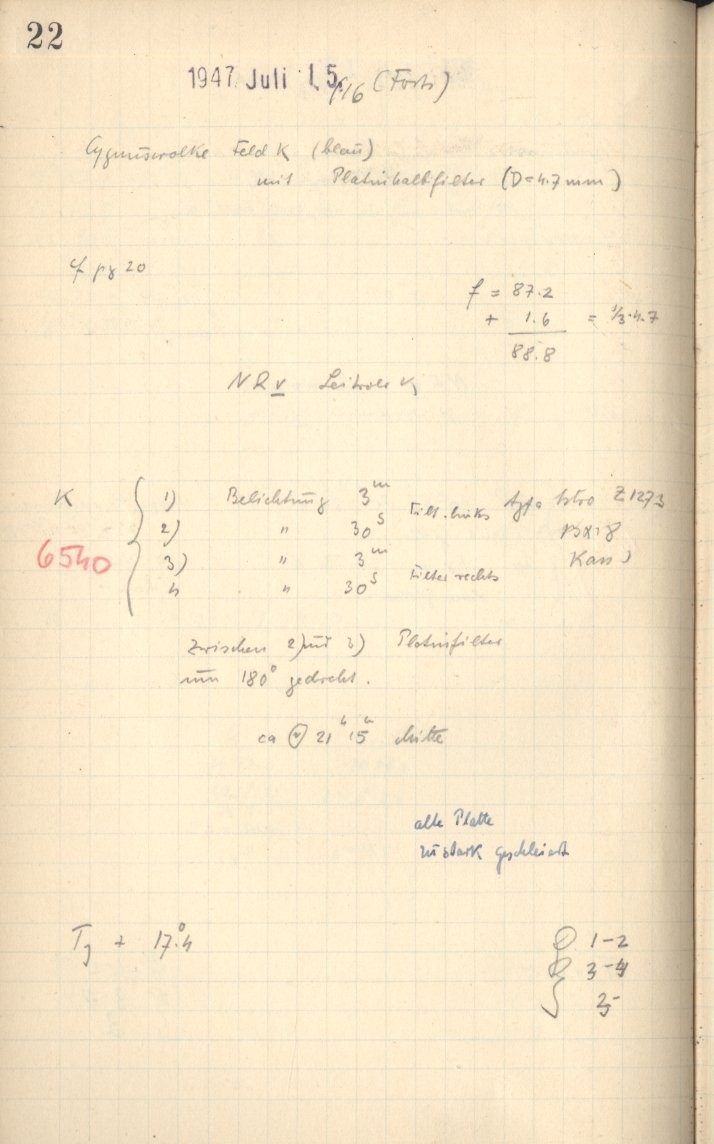 22
1947 Juli 15./16 (Forts)
Cygnuswolke Feld K (blau)
mit Platinhalbfilter (D=4.7mm)
cf pg 20
f = 87.2
+ 1.6 = 1/3·4.7
88.8
NR v K
K
6540
1) Belichtung 3m Filt. links Agfa Astro Z1273
2) " 30s 13x18
3) " 3m Filter rechts
4 " 30s
Zwischen 2) und 3) Platinfilter
um 180° gedreht.
ca 21h 15 Mitte
alte Platte
zu stark geschleiert
+ 17.°4
1-2
3-4